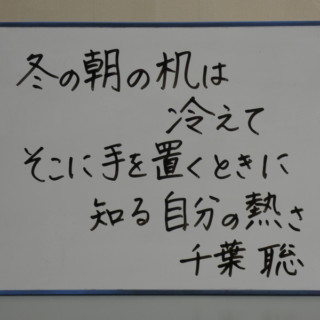 冬の朝の机は
冷えて
そこに手を置くときに
知る自分の熱さ
千葉聡